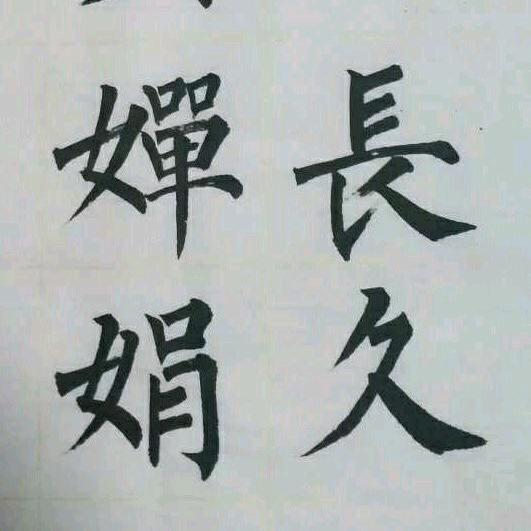 長久
嬋娟